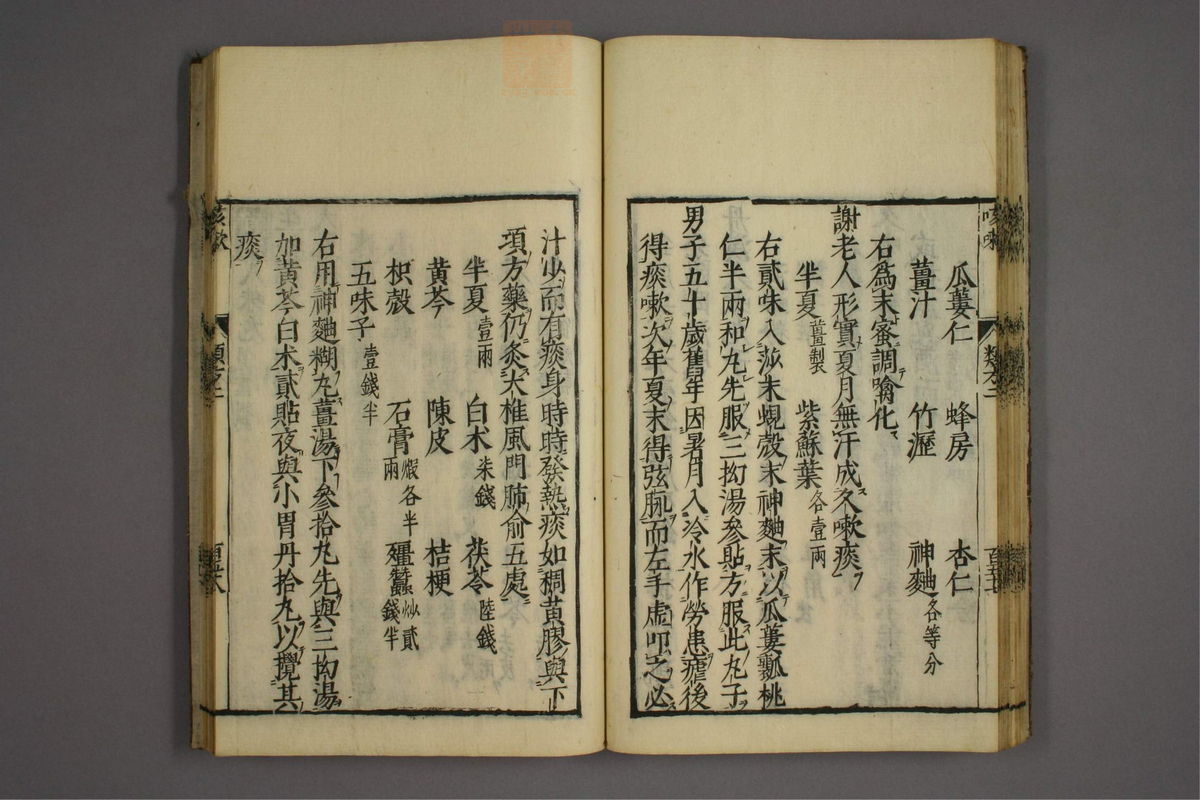 瓜蔞仁　蜂房　杏仁
薑汁　竹瀝　神麯各等分
右爲末蜜調噙化
謝老人形實夏月無汗成久嗽痰
半夏薑製　紫蘇葉各壹兩
右貳味入莎末蜆殼末神麯末以瓜蔞瓤桃
仁半兩和丸先服三拗湯參貼方服此丸子
男子五十歲舊年因暑月入冷水作勞患瘧後
得痰嗽次年夏末得弦脈而左手虛叩之必
汁少而有痰身時時發熱痰如稠黃膠與下
項方藥仍灸大椎風門肺俞五處
半夏壹兩　白朮柒錢　茯苓陸錢
黃芩　陳皮　桔梗
枳殼　石膏煅各半兩　殭蠶炒貳錢半
五味子壹錢半
右用神麯糊丸薑湯下參拾丸先與三拗湯
加黃芩白朮貳貼夜與小胃丹拾丸以攪其
痰
咳嗽
類之二